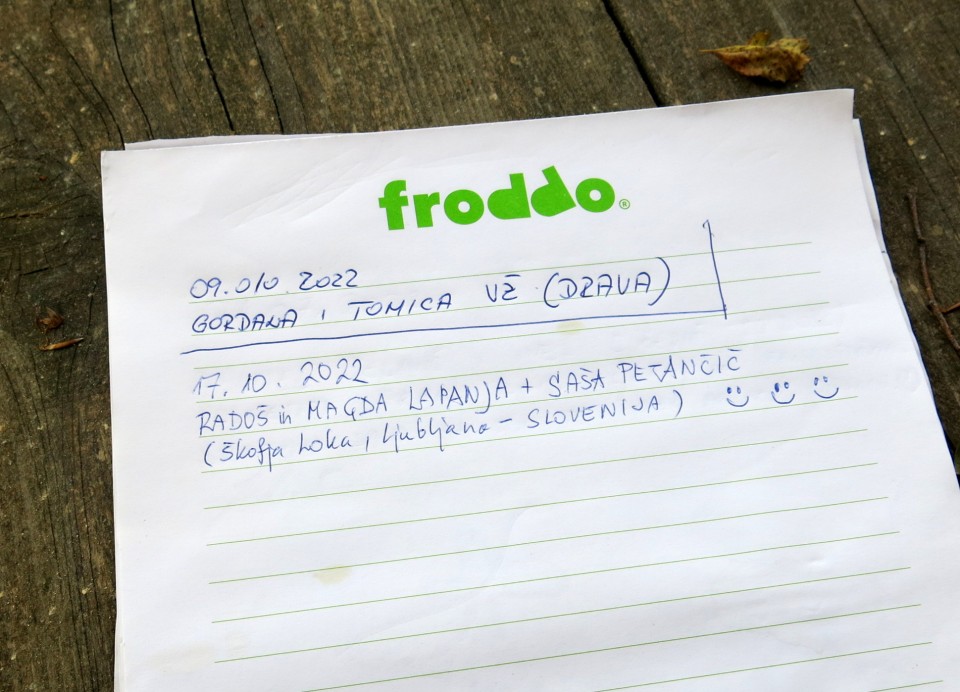 froddo®
09.010 2022
GORDANA i TOMICA VŽ (DRAVA)
17. 10. 2022
RADOŠ in MAGDA LAPANJA + SAŠA PETANČIČ
(Škofja Loka, Ljubljana - SLOVENIJA)